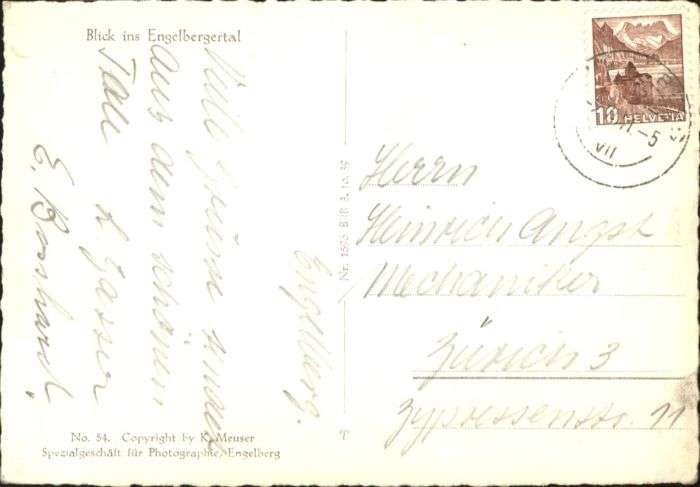 Blick ins Engelbergertal
Engelberg.
Viele Grüsse
aus dem schönen
Tale
E. Bosshard.
No. 54. Copyright by K. Meuser
Spezialgeschäft für Photographie, Engelberg
Nr. 1595 BRB 3. 10. 39
10 HELVETIA
VII
Herrn
Heinrich Angst
Mechaniker
Zürich 3
Zypressenstr. 11